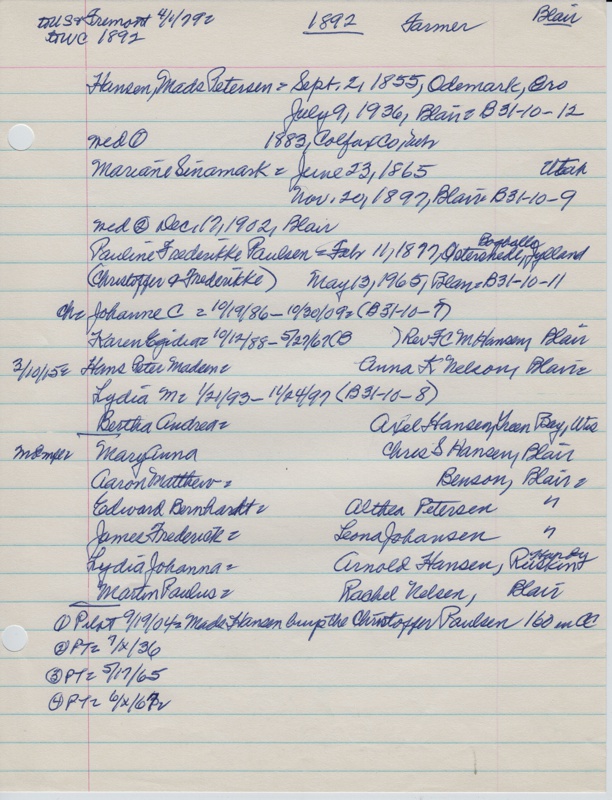 Fremont 4/1/79=
1892 Farmer Blair
WC 1892
Hansen, Mads Petersen = Sept. 2, 1855, Odemark, Oro
July 9, 1936, Blair = B31-10-12
med ① 1883, Colfax Co, Neb
Mariane Sinamark = June 23, 1865 Utah
Nov. 20, 1897, Blair = B31-10-9
med ② Dec. 17, 1902, Blair
Pauline Frederikke Paulsen = Febr 11, 1877, Jylland
(Christoffer & Frederikke) May 13, 1965, Blair = B31-10-11
Ch = Johanne C = 10/19/86 - 10/30/09 = (B31-10-7)
Karen Egidia = 10/12/88 - 5/27/67 (B ) Rev FC M Hansen, Blair
3/10/15 = Hans Peter Madsen = Anna K Nelson, Blair =
Lydia M = 1/21/93 - 11/24/97 (B31-10-8)
Bertha Andrea = Axel Hansen, Green Bay, Wis
Mary Anna Chris S Hansen, Blair
Aaron Matthew = Benson, Blair =
Edward Bernhardt = Althea Petersen "
James Frederick = Leona Johansen "
Lydia Johanna = Arnold Hansen, Ruskin
Martin Paulus = Rachel Nelsen, Blair
① Pilot 9/19/04 = Mads Hansen buys the Christoffer Paulsen 160 in OC
② PT = 7/X/36
③ PT = 5/17/65
④ PT = 6/X/67